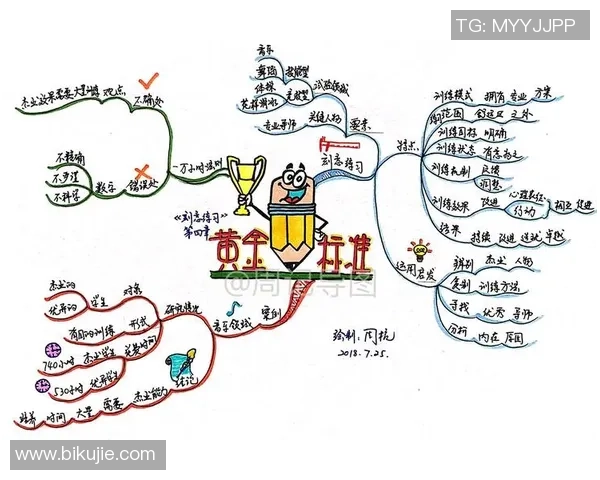 TG: MYYJJPP
《刻意练习》
第四章
黄金标准
@周杭导图
绘制:周杭
2018.7.25.
刻意练习
要素
试验领域
技能型
音乐
舞蹈
体操
花样滑冰
关键人物
专业导师
特点
训练模式 拥有 专业 方案
训练范围 舒适区 之外
训练目标 明确
训练状态 有意为之
训练机制 反馈
调整
训练效果 改进 心理表征
行动
相互 促进
结果 持续 改进
运用启发
辨别 杰出 人物
复制 训练方法
寻找 优秀 导师
分析 内在 原因
案例
音乐领域
研究情况
对象
学生
杰出的
优异的
形式
有目的训练
花费时间
740小时 杰出学生
530小时 优异学生
结论
杰出能力 需要 大量 时间 培养
一万小时法则
正确处
观点
杰出效果需要大量训练
错误处
数字
不精确
不步理
不科学
www.bikujie.com